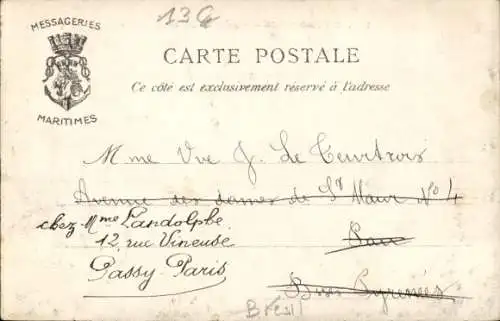 136
MESSAGERIES
MARITIMES
CARTE POSTALE
Ce côté est exclusivement réservé à l'adresse
Mme Vve J. Le
Avenue des dames de St Maur No 4
chez Mme Landolphe
12, rue Vineuse
Pau
Passy-Paris
Bses Pyrénées
Brésil